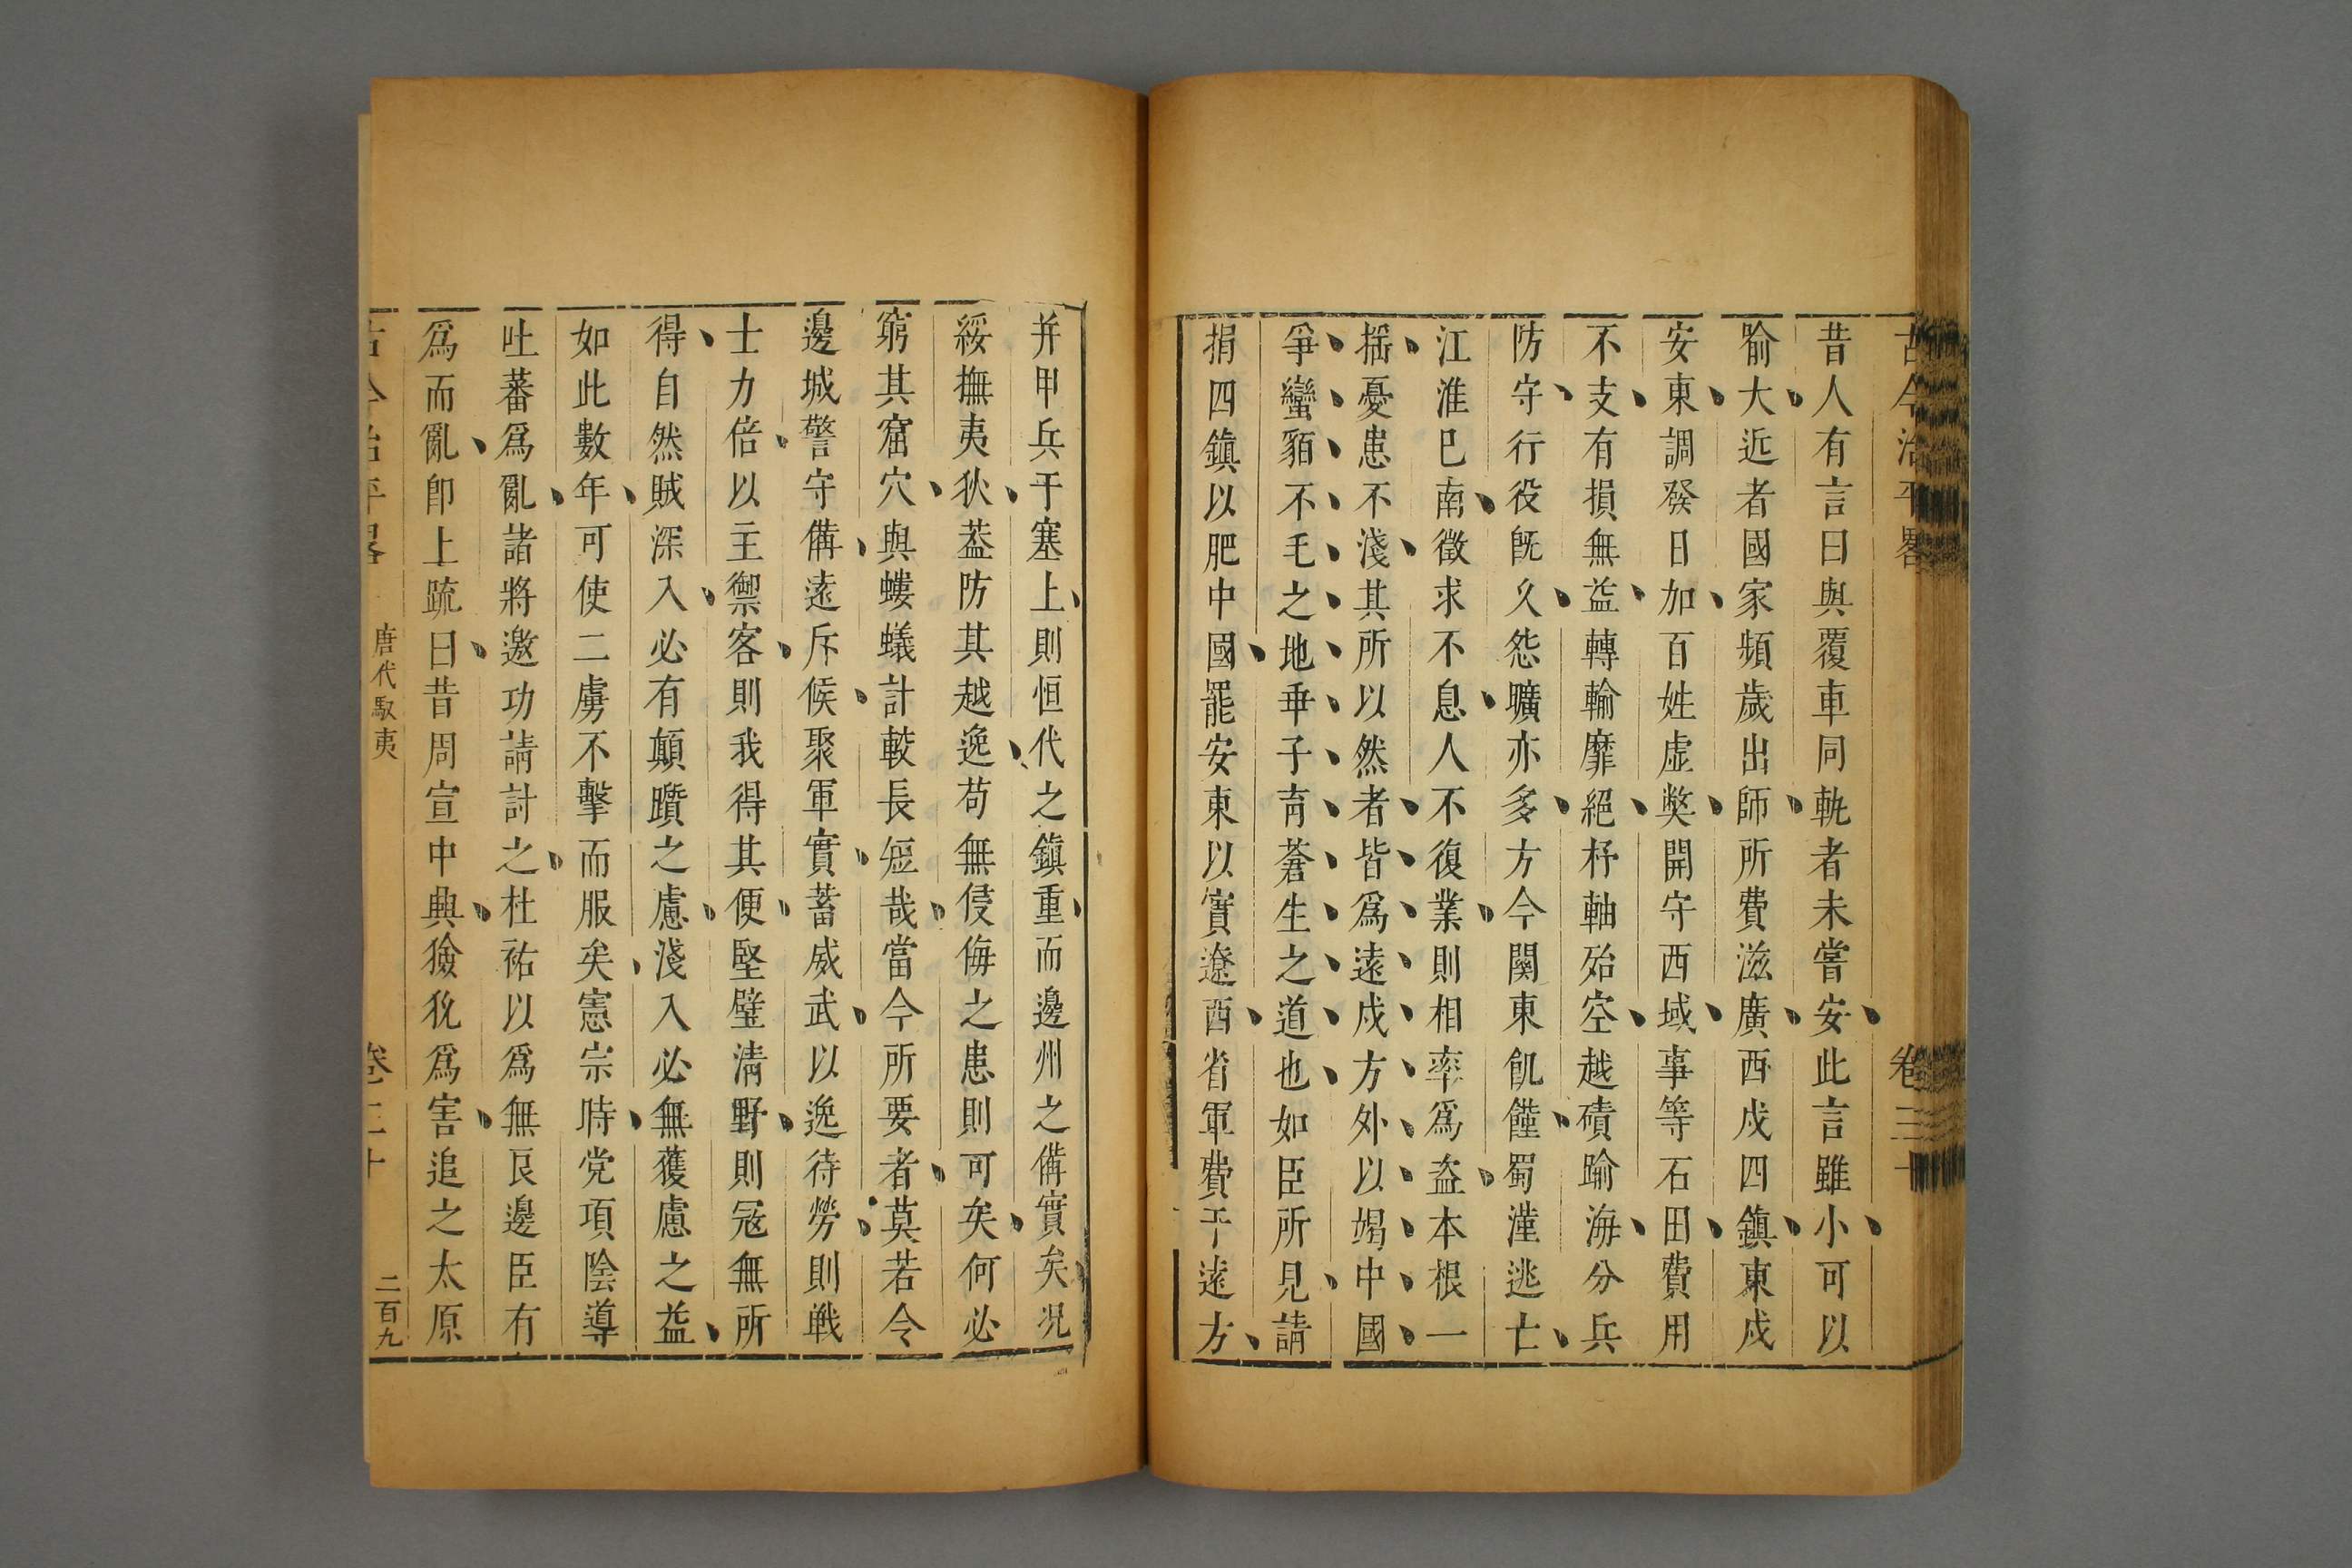 古今治平畧 卷三十
昔人有言曰與覆車同軌者未嘗安此言雖小可以
喻大近者國家頻歲出師所費滋廣西戍四鎮東戍
安東調發日加百姓虛獘開守西域事等石田費用
不支有損無益轉輸靡絕杼軸殆空越磧踰海分兵
防守行役旣久怨曠亦多方今關東飢饉蜀漢逃亡
江淮巳南徵求不息人不復業則相率爲盜本根一
搖憂患不淺其所以然者皆爲遠戍方外以竭中國
爭蠻貊不毛之地乖子育蒼生之道也如臣所見請
捐四鎮以肥中國罷安東以實遼西省軍費于遠方
并甲兵于塞上則恒代之鎮重而邊州之備實矣況
綏撫夷狄葢防其越逸苟無侵侮之患則可矣何必
窮其窟穴與螻蟻計較長短哉當今所要者莫若令
邊城警守備遠斥候聚軍實蓄威武以逸待勞則戰
士力倍以主禦客則我得其便堅壁清野則寇無所
得自然賊深入必有顛躓之慮淺入必無獲慮之益
如此數年可使二虜不擊而服矣憲宗時党項陰導
吐蕃爲亂諸將邀功請討之杜祐以爲無良邊臣有
爲而亂卽上疏曰昔周宣中興獫狁爲害追之太原
古今治平畧 唐代馭夷 卷三十 二百九